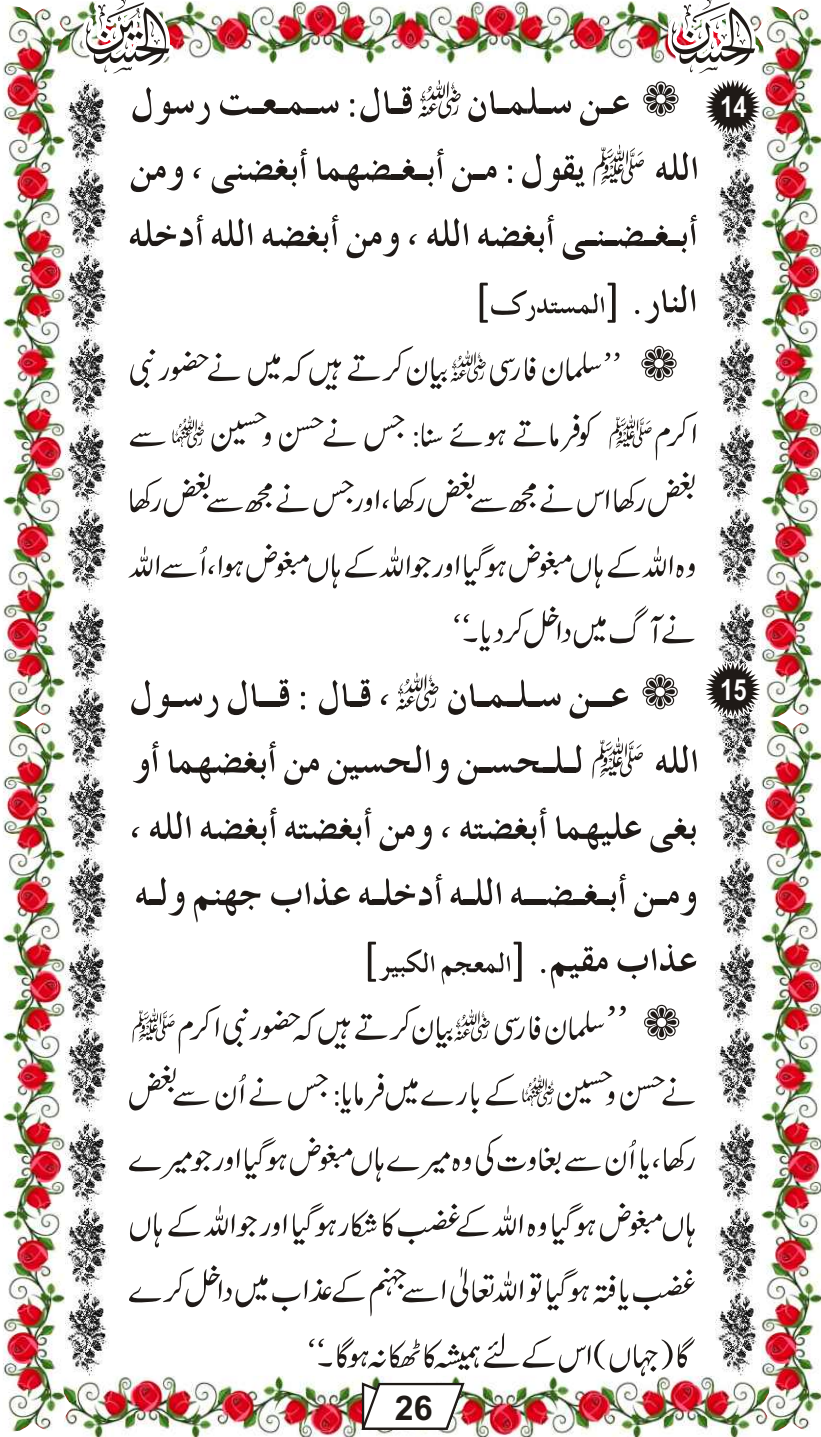 الحسنین الحسنین
14 عن سلمان رضی اللہ عنہ قال: سمعت رسول
الله صلی اللہ علیہ وسلم يقول : من أبغضهما أبغضنى ، ومن
أبغضنى أبغضه الله ، ومن أبغضه الله أدخله
النار . [المستدرک]
’’سلمان فارسی رضی اللہ عنہ بیان کرتے ہیں کہ میں نے حضور نبی
اکرم صلی اللہ علیہ وسلم کوفرماتے ہوئے سنا: جس نے حسن وحسین رضی اللہ عنہما سے
بغض رکھا اس نے مجھ سے بغض رکھا،اورجس نے مجھ سے بغض رکھا
وہ اللہ کے ہاں مبغوض ہوگیا اور جواللہ کے ہاں مبغوض ہوا،اُسے اللہ
نے آگ میں داخل کردیا۔‘‘
15 عن سلمان رضی اللہ عنہ ، قال : قال رسول
الله صلی اللہ علیہ وسلم للحسن والحسين من أبغضهما أو
بغى عليهما أبغضته ، ومن أبغضته أبغضه الله ،
ومن أبغضه الله أدخله عذاب جهنم وله
عذاب مقيم. [المعجم الكبير]
’’سلمان فارسی رضی اللہ عنہ بیان کرتے ہیں کہ حضور نبی اکرم صلی اللہ علیہ وسلم
نے حسن وحسین رضی اللہ عنہما کے بارے میں فرمایا: جس نے اُن سے بغض
رکھا،یا اُن سے بغاوت کی وہ میرے ہاں مبغوض ہوگیا اور جومیرے
ہاں مبغوض ہوگیا وہ اللہ کے غضب کا شکار ہوگیا اور جو اللہ کے ہاں
غضب یافتہ ہوگیا تو اللہ تعالٰی اسے جہنم کے عذاب میں داخل کرے
گا(جہاں)اس کے لئے ہمیشہ کا ٹھکانہ ہوگا۔‘‘
26